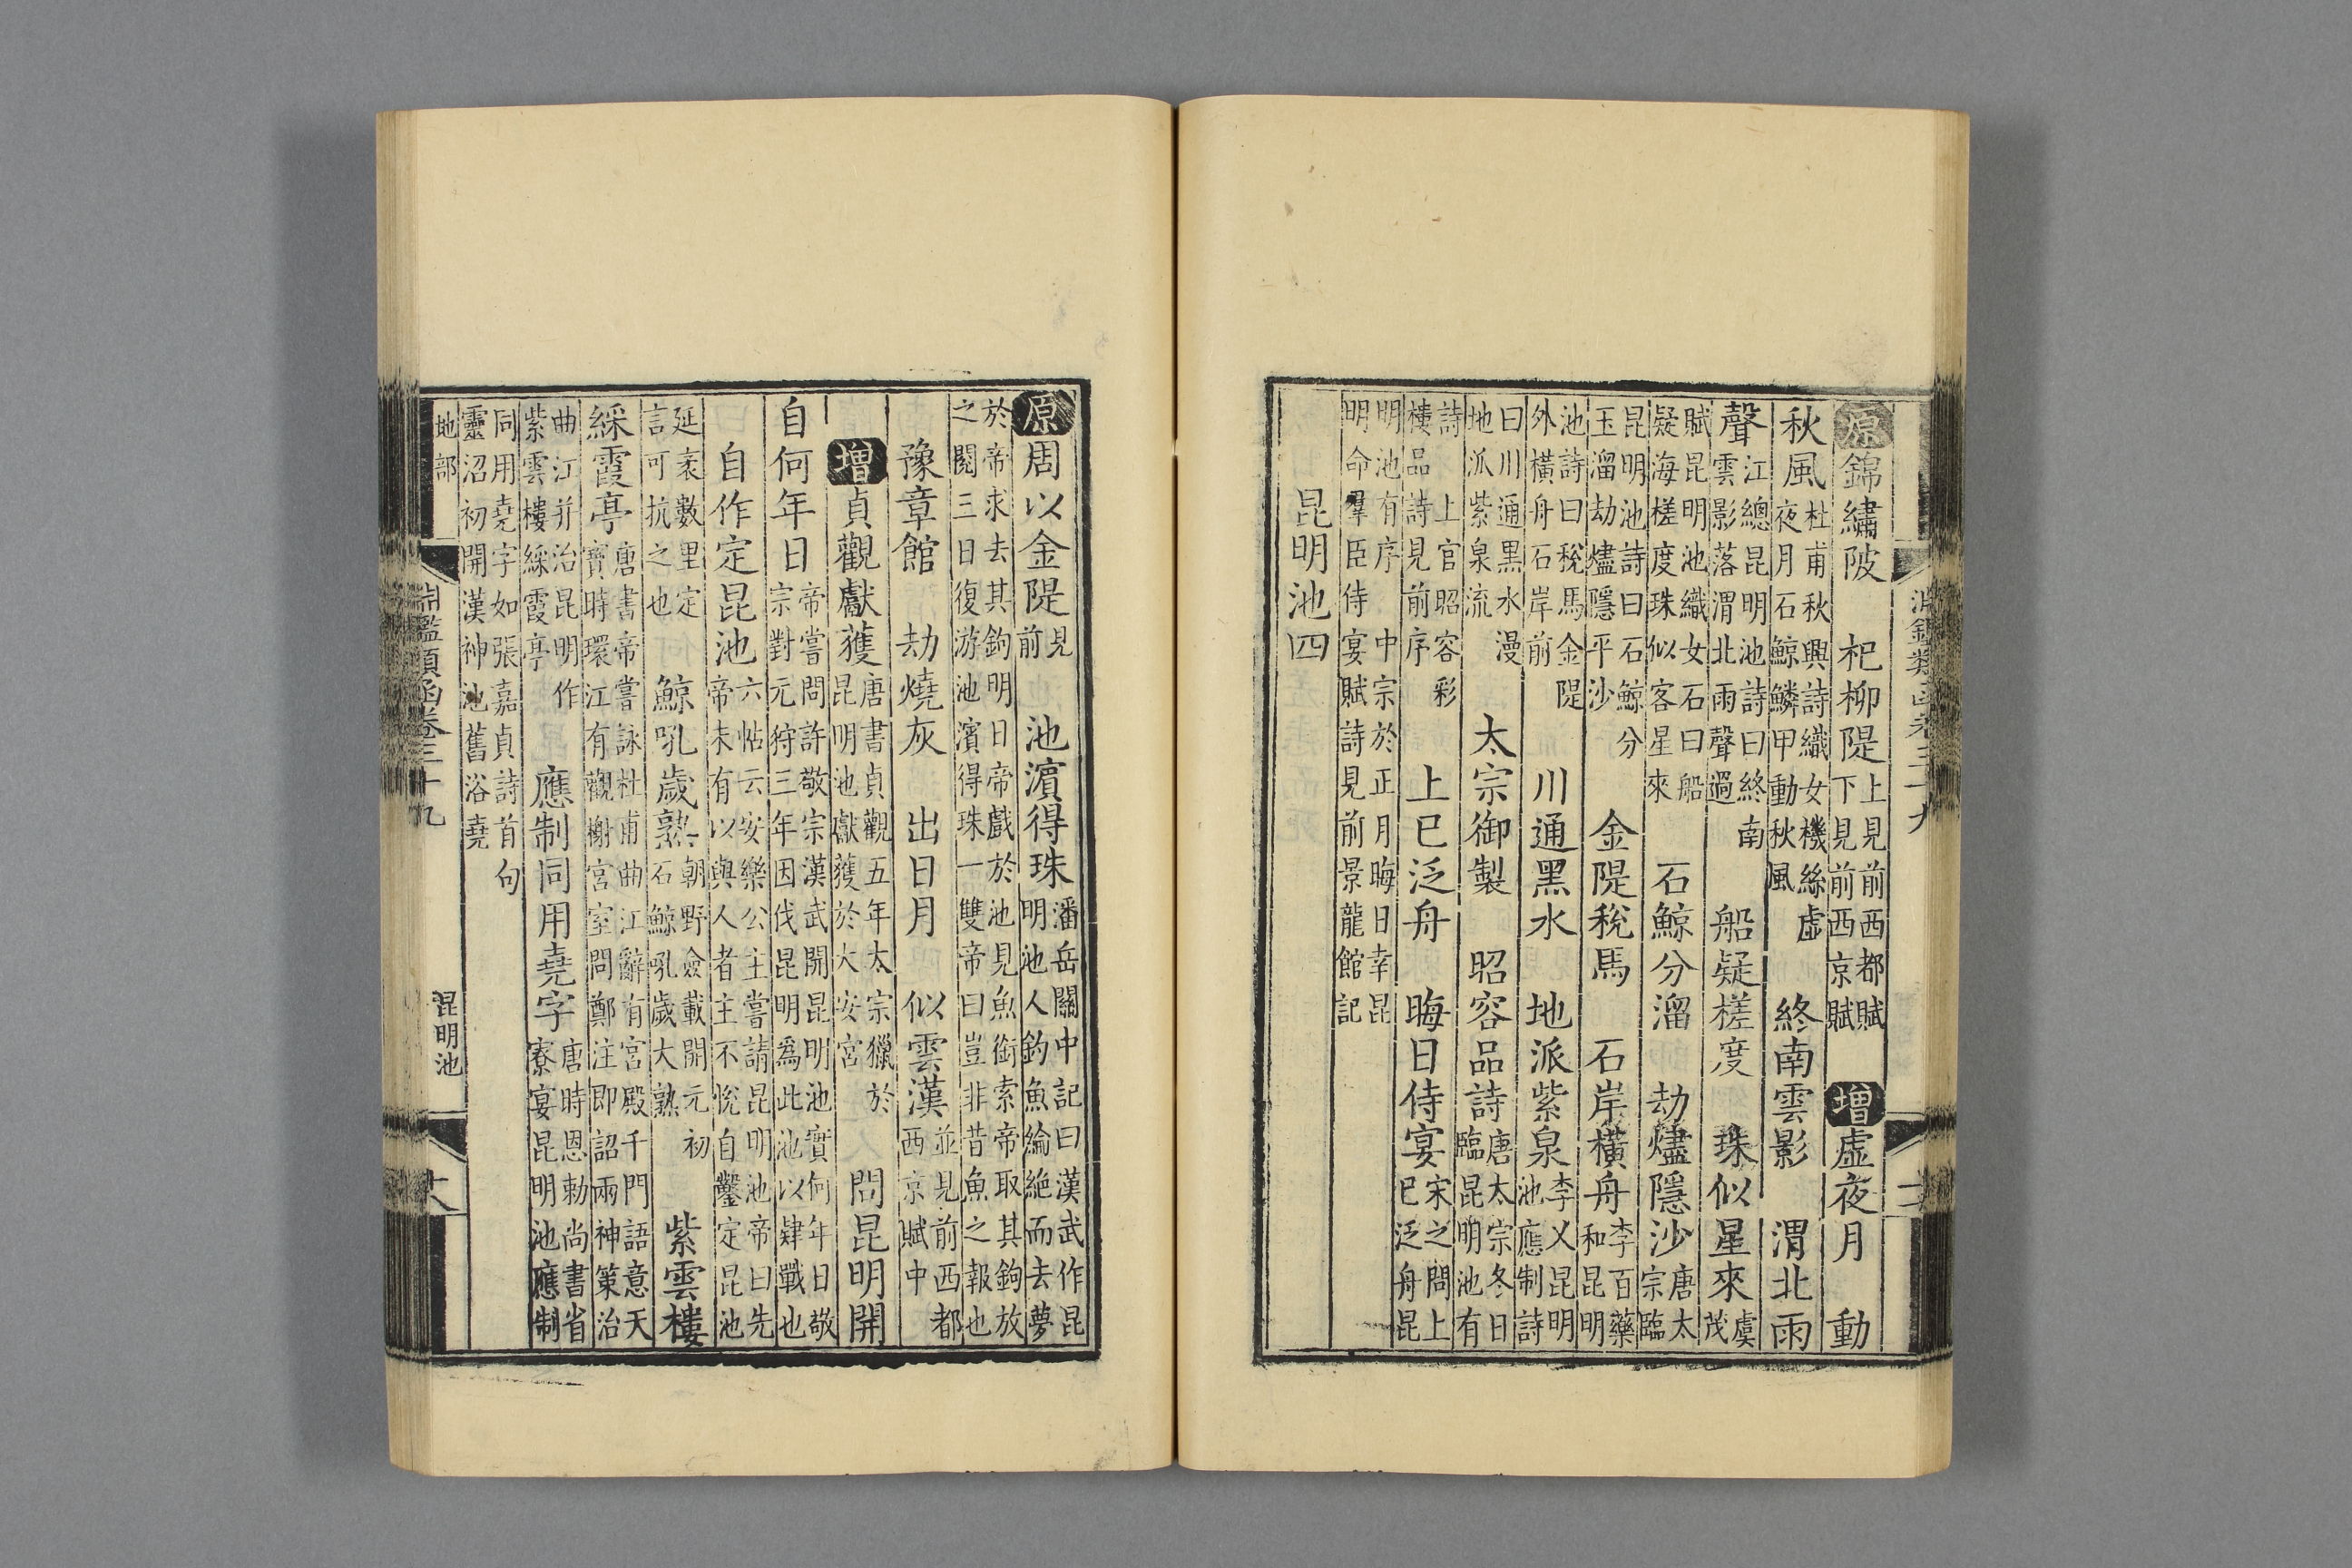 淵鑑類函卷三十九
原錦繡陂 杞柳隄 上見前西都賦
下見前西京賦
增虛夜月 動
秋風 杜甫秋興詩織女機絲虛
夜月石鯨鱗甲動秋風
終南雲影 渭北雨
聲 江總昆明池詩曰終南
雲影落渭北雨聲過
船疑槎度 珠似星來 虞
茂
賦昆明池織女石曰船
疑海槎度珠似客星來
石鯨分溜 劫燼隱沙 唐太
宗臨
昆明池詩曰石鯨分
玉溜劫燼隱平沙
金隄稅馬 石岸橫舟 李百藥
和昆明
池詩曰稅馬金隄
外橫舟石岸前
川通黑水 地派紫泉 李乂昆明
池應制詩
曰川通黑水漫
地派紫泉流
太宗御製 昭容品詩 唐太宗冬日
臨昆明池有
詩 上官昭容彩
樓品詩見前序
上巳泛舟 晦日侍宴 宋之問上
巳泛舟昆
明池有序 中宗於正月晦日幸昆
明命羣臣侍宴賦詩見前景龍館記
昆明池四
原周以金隄 見
前
池濵得珠 潘岳關中記曰漢武作昆
明池人釣魚綸絶而去夢
於帝求去其鉤明日帝戲於池見魚銜索帝取其鉤放
之閱三日復游池濱得珠一雙帝曰豈非昔魚之報也
豫章館 劫燒灰 出日月 似雲漢 並見前西都
西京賦中
增貞觀獻獲 唐書貞觀五年太宗獵於
昆明池獻獲於大安宮
問昆明開
自何年日 帝嘗問許敬宗漢武開昆明池實何年日敬
宗對元狩三年因伐昆明爲此池以肄戰也
自作定昆池 六帖云安樂公主嘗請昆明池帝曰先
帝未有以與人者主不悅自鑿定昆池
延袤數里定
言可抗之也
鯨吼歲熟 朝野僉載開元初
石鯨吼歲大熟
紫雲樓
綵霞亭 唐書帝嘗詠杜甫曲江辭有宮殿千門語意天
寶時環江有觀榭宮室問鄭注即詔兩神策治
曲江幷治昆明作
紫雲樓綵霞亭
應制同用堯字 唐時恩勅尚書省
寮宴昆明池應制
同用堯字如張嘉貞詩首句
靈沼初開漢神池舊浴堯
地部
淵鑑類函卷三十九
昆明池